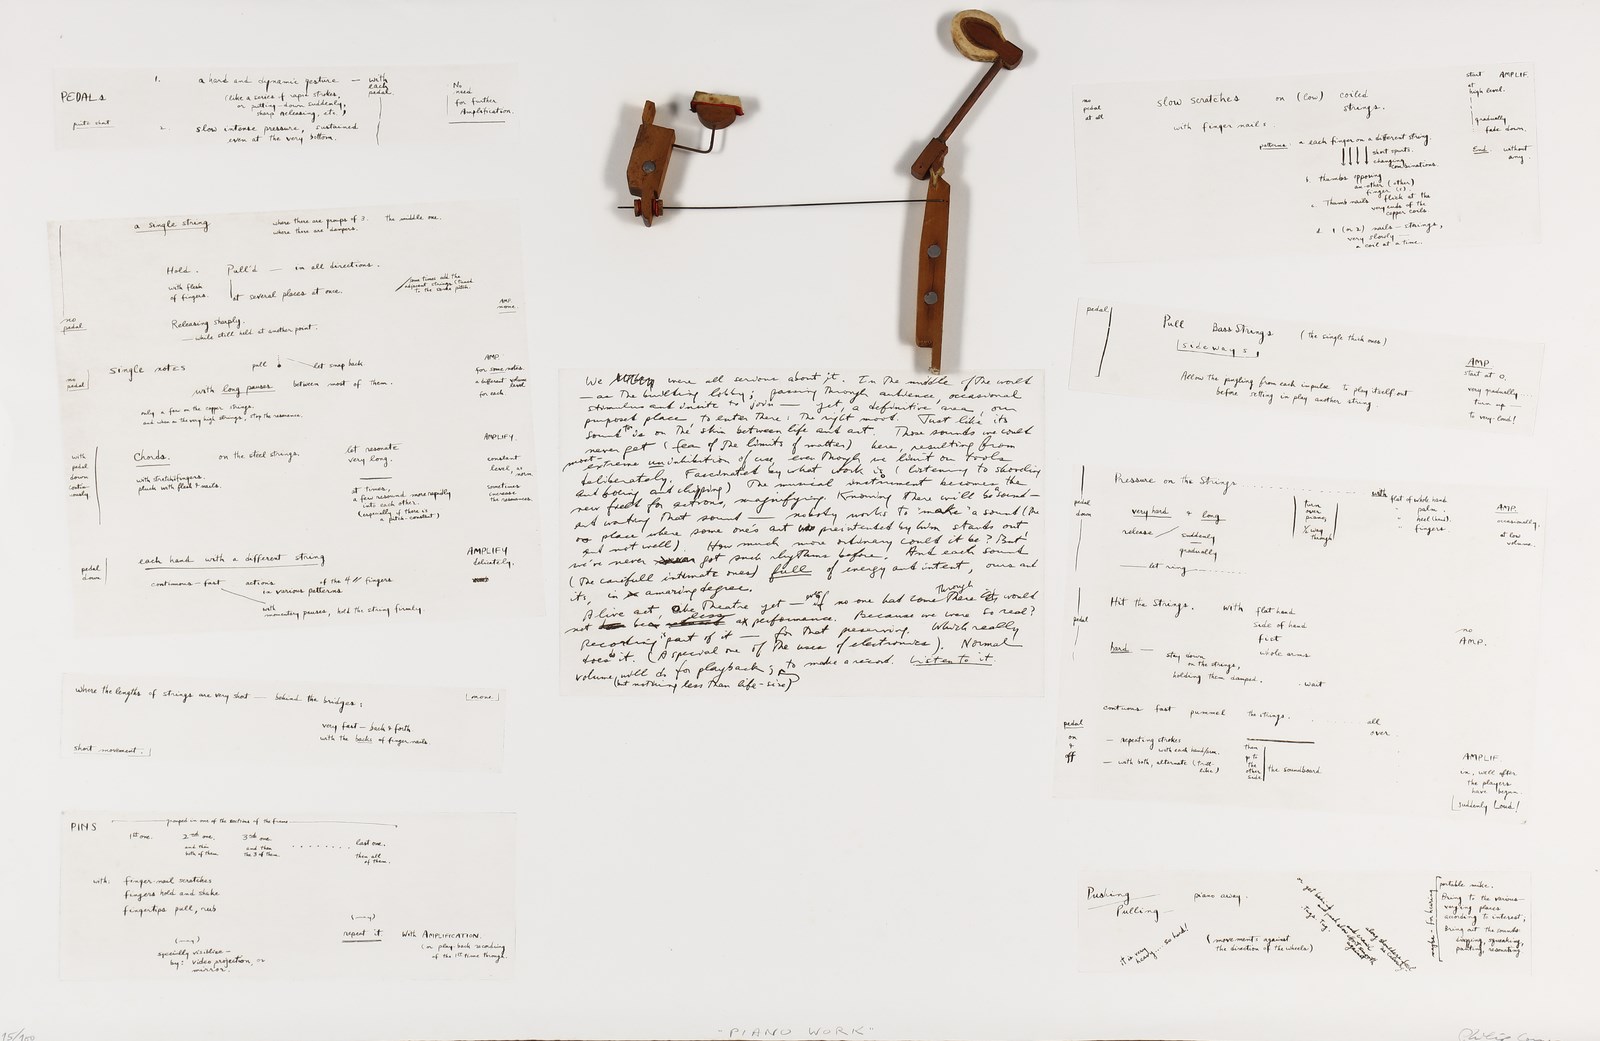 PEDALS
quite short
1. a hard and dynamic gesture — with each pedal.
(like a series of rapid strokes,
or putting-down suddenly,
sharp releasing, etc.)
2. slow intense pressure, sustained
even at the very bottom.
No
need
for further
Amplification.
a single string
where there are groups of 3. The middle one.
where there are dampers.
Hold. Pull'd — in all directions.
with flesh
of fingers.
at several places at once.
sometimes add the
adjacent strings tuned
to the same pitch.
AMP.
none.
no
pedal
Releasing sharply.
— while still held at another point.
single notes
pull
let snap back
with long pauses between most of them.
no
pedal
only a few on the copper strings.
and when on the very high strings, stop the resonance.
AMP.
for some notes
a different volume
level
for each
Chords. on the steel strings.
with stretch'd fingers.
pluck with flesh & nails.
let resonate
very long.
at times,
a few resound more rapidly
into each other.
(especially if there is
a pitch-constant)
with
pedal
down
AMPLIFY.
constant
level, as
norm.
sometimes
increase
the resonances.
each hand with a different string
pedal
down
continuous — fast actions of the 4 fingers
in various patterns
with
momentary pauses, hold the string firmly.
AMPLIFY
delicately.
Where the lengths of strings are very short — behind the bridges;
[none.]
very fast — back & forth
with the backs of finger-nails
short movement.
PINS
grouped in one of the sections of the frame
1st one. 2nd one. 3rd one. . . . . . . . last one.
and then
both of them.
and then
the 3 of them.
then all
of them.
with: finger-nail scratches
fingers hold and shake
fingertips pull, rub
(— may)
specially visible —
by: video projection, or
mirror.
(— may)
repeat it with AMPLIFICATION.
(or play-back recording
of the 1st time through.
We were all serious about it. In the middle of the world
— as the building lobby; passing through audience, occasional
stimulus and invite to join — yet, a definitive area, our
purposed place to enter there: the right mood. Just like its
sound is on the skin between life and art. Those sounds we could
never get (fear of the limits of matter) here, resulting from
most-extreme uninhibition of use, even though we limit our tools
deliberately. Fascinated by what work is (listening to shoveling
and boring and chipping) The musical instrument becomes the
new field for actions, magnifying. Knowing there will be a sound —
and wanting that sound — nobody works to "make" a sound (the
place where some one's art presintended by him stands out
and not well). How much more ordinary could it be? But
we've never got such rhythms before. And each sound
(the carefull intimate ones) full of energy and intent, ours and
its, in amazing degree.
A live act, like Theatre yet — if no one had come through there it would
not be less a performance. Because we were so real?
Recording part of it — for that preserving. Which really
does it. (A special one of the uses of electronics). Normal
volume, will do for playback; to make a record. Listen to it.
(but nothing less than life-size)
no
pedal
at all
slow scratches on (low) coiled
strings.
with finger nails:
patterns: a. each finger on a different string.
short spurts.
changing
combinations.
b. thumbs opposing
another (other)
finger(s).
c. Thumb nails flick at the
very ends of the
copper coils.
d. 1 (or 2) nails — strings,
very slowly —
a coil at a time.
start AMPLIF.
at
high level.
gradually
fade down.
End without
any.
pedal
Pull Bass Strings (the single thick ones)
sideways,
Allow the jangling from each impulse to play itself out
before setting in play another string
AMP.
start at 0,
very gradually
turn up —
to very loud!
pedal
down
Pressure on the Strings . . . . . . . . with flat of whole hand
" palm.
" heel (hand).
" fingers
very hard & long
release / suddenly
gradually
— let ring . . . . . . . .
turn
over
piano,
½ way
through
AMP.
occasionally.
at low
volume.
pedal
Hit the Strings. with flat hand
side of hand
fist
whole arms
hard — stay down
on the strings,
holding them damped.
- wait
no
AMP.
continuous fast pummel the strings. . . . . . . all
over.
pedal
on
&
off
— repeating strokes
with each hand/arm.
— with both, alternate (trill-
like)
then
go to
the
other
side
the soundboard.
AMPLIF.
in, well after
the players
have begun.
suddenly Loud!
Pushing
Pulling
piano away.
it is very
heavy . . . so hard!
(movements against
the direction of the wheels)
maybe — for hearing
portable mike.
Bring to the various
varying places
acording to interest;
bring out the sounds:
"PIANO WORK"
15/100